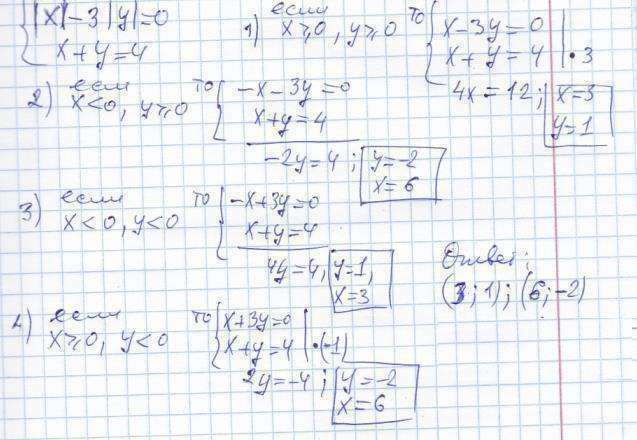 {|x|-3|y|=0
x+y=4
1) если x⩾0, y⩾0 то {x-3y=0
x+y=4 |·3
4x=12; x=3
y=1
2) если x<0, y⩾0 то {-x-3y=0
x+y=4
-2y=4; y=-2
x=6
3) если x<0, y<0 то {-x+3y=0
x+y=4
4y=4, y=1,
x=3
4) если x⩾0, y<0 то {x+3y=0
x+y=4 |·(-1)
2y=-4; y=-2
x=6
Ответ:
(3;1); (6;-2)